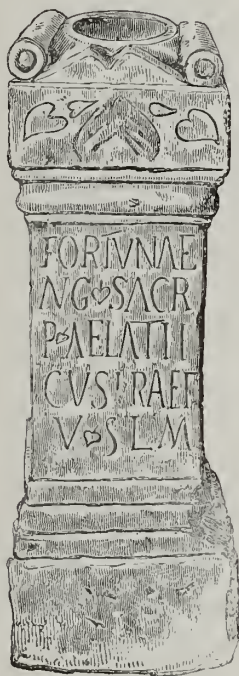 FORTVNAE
AVG❧SACR
P❧AELATTI
CVSPRAEF
V❧SLM